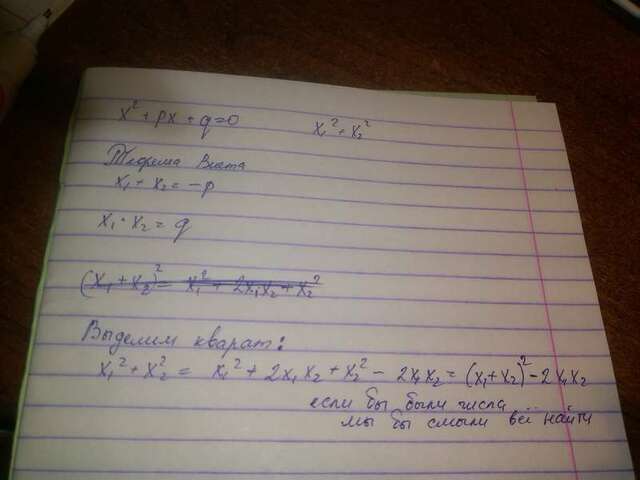 x² + px + q = 0
x₁² + x₂²
Теорема Виета
x₁ + x₂ = -p
x₁ · x₂ = q
(x₁ + x₂)² = x₁² + 2x₁x₂ + x₂²
Выделим кварат:
x₁² + x₂² = x₁² + 2x₁x₂ + x₂² - 2x₁x₂ = (x₁+x₂)² - 2x₁x₂
если бы были числа
мы бы смогли всё найти